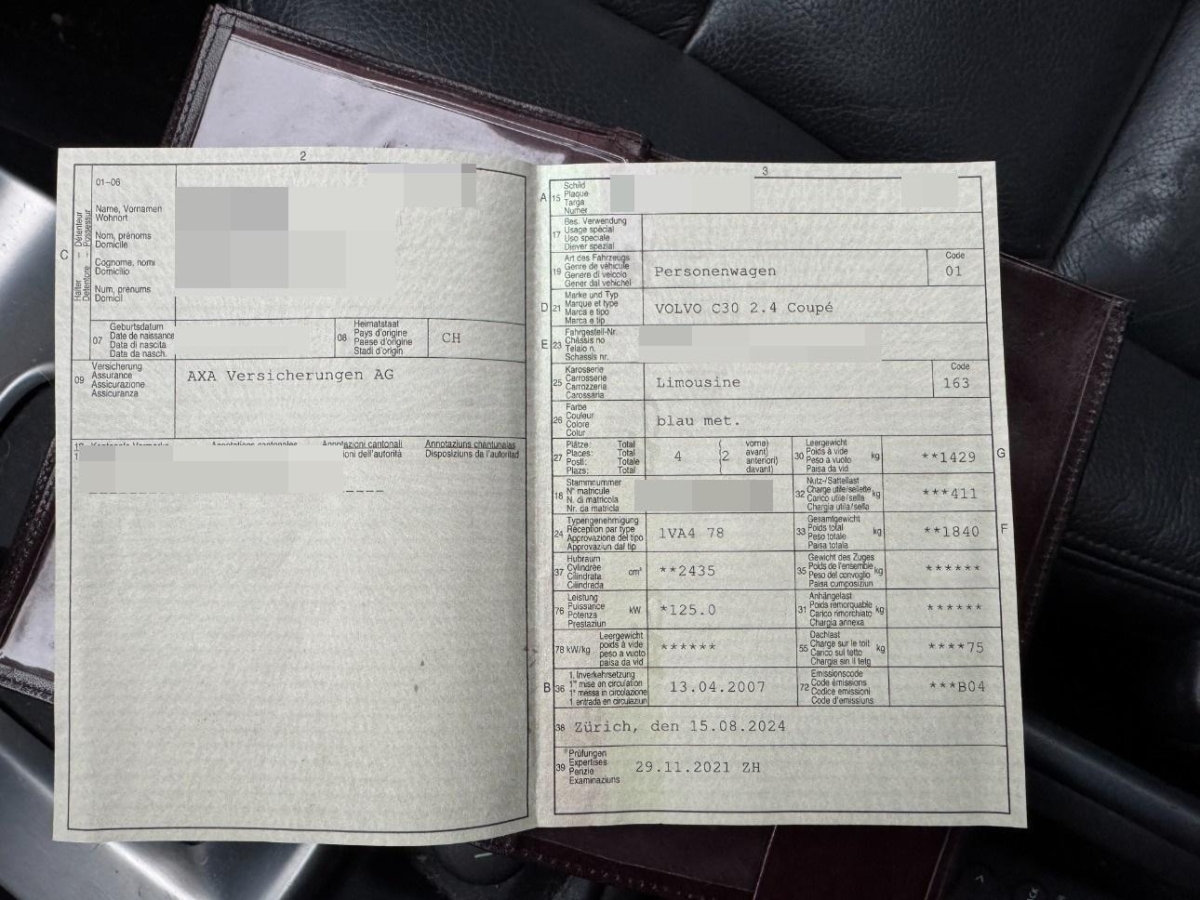 2
01-06
Name, Vornamen
Wohnort
Nom, prénoms
Domicile
Cognome, nomi
Domicilio
Num, prenums
Domicil
C
Halter – Détenteur
Detentore – Possessur
07
Geburtsdatum
Date de naissance
Data di nascita
Data da nasch.
08
Heimatstaat
Pays d'origine
Paese d'origine
Stadi d'origin
CH
09
Versicherung
Assurance
Assicurazione
Assicuranza
AXA Versicherungen AG
Annotazioni cantonali
Annotaziuns chantunalas
ioni dell'autorità
Disposiziuns da l'autoritad
3
A
15
Schild
Plaque
Targa
Numer
17
Bes. Verwendung
Usage spécial
Uso speciale
Diever spezial
19
Art des Fahrzeugs
Genre de véhicule
Genere di veicolo
Gener dal vehichel
Personenwagen
Code
01
D
21
Marke und Typ
Marque et type
Marca e tipo
Marca e tip
VOLVO C30 2.4 Coupé
E
23
Fahrgestell-Nr.
Châssis no
Telaio n.
Schassis nr.
25
Karosserie
Carrosserie
Carrozzeria
Carossaria
Limousine
Code
163
26
Farbe
Couleur
Colore
Colur
blau met.
27
Plätze: Total
Places: Total
Posti: Totale
Plazs: Total
4
(2
vorne)
avant)
anteriori)
davant)
30
Leergewicht
Poids à vide
Peso a vuoto
Paisa da vid
kg
**1429
G
18
Stammnummer
N° matricule
N. di matricola
Nr. da matricla
32
Nutz-/Sattellast
Charge utile/sellette
Carico utile/sella
Chargia utila/sella
kg
***411
24
Typengenehmigung
Réception par type
Approvazione del tipo
Approvaziun dal tip
1VA4 78
33
Gesamtgewicht
Poids total
Peso totale
Paisa totala
kg
**1840
F
37
Hubraum
Cylindrée
Cilindrata
Cilindrada
cm³
**2435
35
Gewicht des Zuges
Poids de l'ensemble
Peso del convoglio
Paisa cumposiziun
kg
******
76
Leistung
Puissance
Potenza
Prestaziun
kW
*125.0
31
Anhängelast
Poids remorquable
Carico rimorchiato
Chargia annexa
kg
******
78 kW/kg
Leergewicht
poids à vide
peso a vuoto
paisa da vid
******
55
Dachlast
Charge sur le toit
Carico sul tetto
Chargia sin il tetg
kg
****75
B
36
1. Inverkehrsetzung
1re mise en circulation
1a messa in circolazione
1. entrada en circulaziun
13.04.2007
72
Emissionscode
Code émissions
Codice emissioni
Code d'emissiuns
***B04
38
Zürich, den 15.08.2024
39
Prüfungen
Expertises
Perizie
Examinaziuns
29.11.2021 ZH